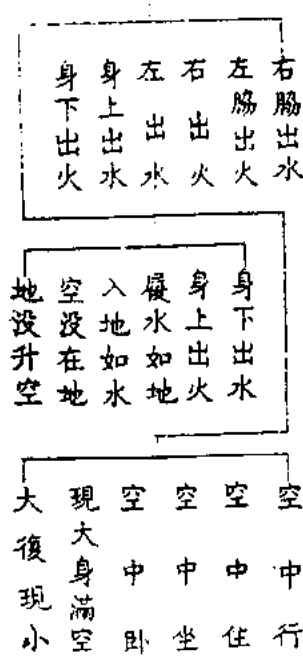 右脇出水
左脇出火
右出火
左出水
身上出水
身下出火
身下出水
身上出火
履水如地
入地如水
空没在地
地没升空
空中行
空中住
空中坐
空中卧
現大身滿空
大復現小